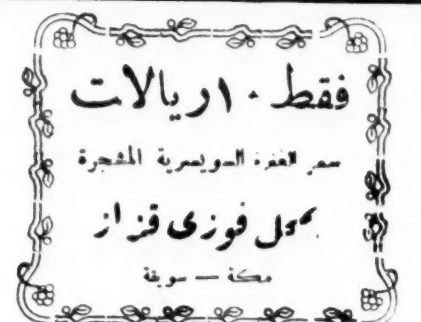 فقط ١٠ ريالات
سعر الغترة السويسرية المشجرة
بمحل فوزي قزاز
مكة — سويقة